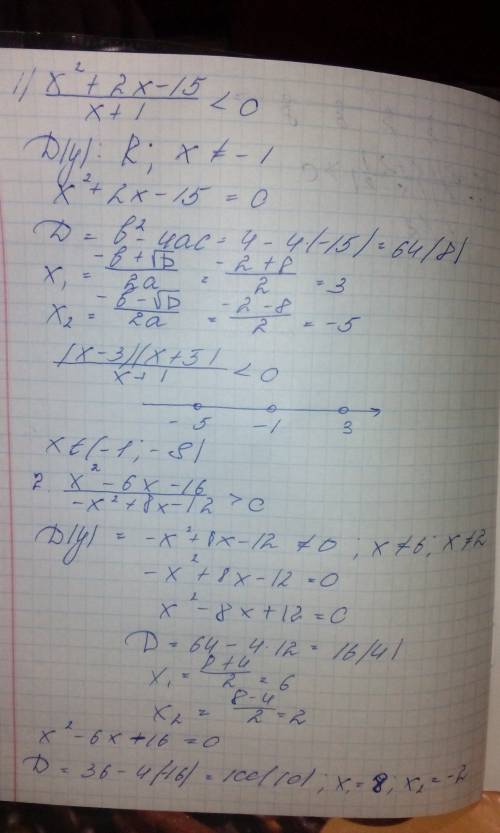 1) (x² + 2x - 15)/(x + 1) < 0
D(y): R; x ≠ -1
x² + 2x - 15 = 0
D = b² - 4ac = 4 - 4(-15) = 64(8)
x₁ = (-b + √D)/2a = (-2 + 8)/2 = 3
x₂ = (-b - √D)/2a = (-2 - 8)/2 = -5
(x - 3)(x + 5)/(x + 1) < 0
-5 -1 3
x ∈ (-1; -5)
2. (x² - 6x - 16)/(-x² + 8x - 12) > 0
D(y) = -x² + 8x - 12 ≠ 0; x ≠ 6; x ≠ 2
-x² + 8x - 12 = 0
x² - 8x + 12 = 0
D = 64 - 4·12 = 16(4)
x₁ = (8 + 4)/2 = 6
x₂ = (8 - 4)/2 = 2
x² - 6x - 16 = 0
D = 36 - 4(-16) = 100(10); x₁ = 8; x₂ = -2